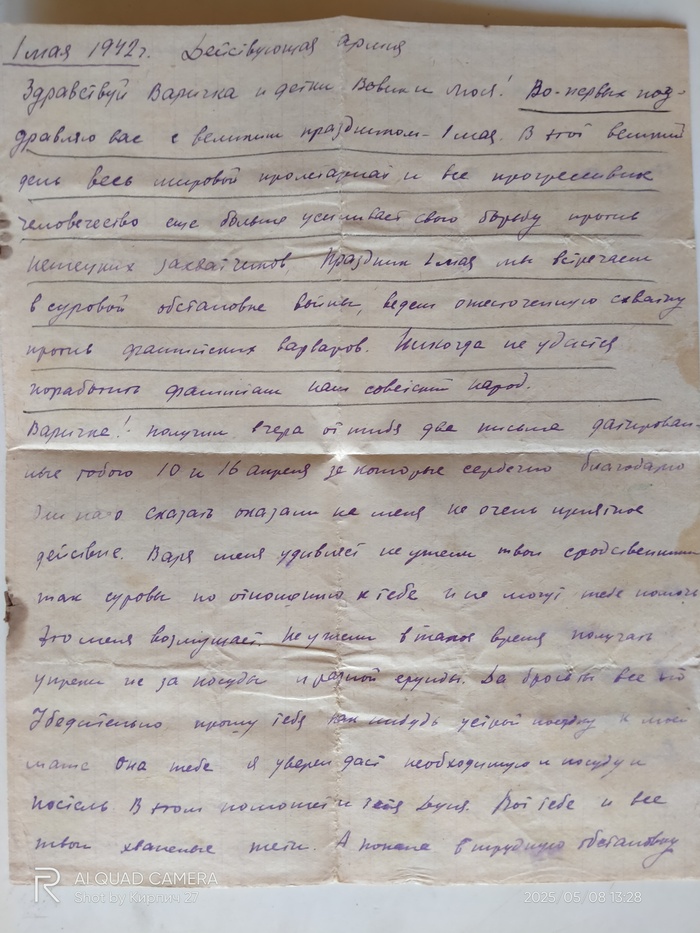 1 мая 1942г. Действующая армия
Здравствуй Варичка и детки Вовик и Люся! Во-первых поз-
дравляю вас с великим праздником - 1 мая. В этот великий
день весь мировой пролетариат и все прогрессивное
человечество еще больше усиливает свою борьбу против
немецких захватчиков. Праздник 1 мая мы встречаем
в суровой обстановке войны, ведем ожесточенную схватку
против фашистских варваров. Никогда не удастся
поработить фашистам наш советский народ.
Варичка! получил вчера от тебя два письма датирован-
ные тобою 10 и 16 апреля за которые сердечно благодарю
Они надо сказать оказали на меня не очень приятное
действие. Варя меня удивляет неужели твои сродственники
так суровы по отношению к тебе и не могут тебе помочь
Это меня возмущает. Неужели в такое время получать
упреки из за посуды и разной ерунды. Да брось ты все
Убедительно прошу тебя как нибудь устрой поездку к моей
маме Она тебе я уверен даст необходимую и посуду и
постель В этом поможет и тетя Дуня. Вот тебе и все
твои хваленые тети. А попала в трудную обстановку
AI QUAD CAMERA
Shot by Кирпич 27
2025/05/08 13:28